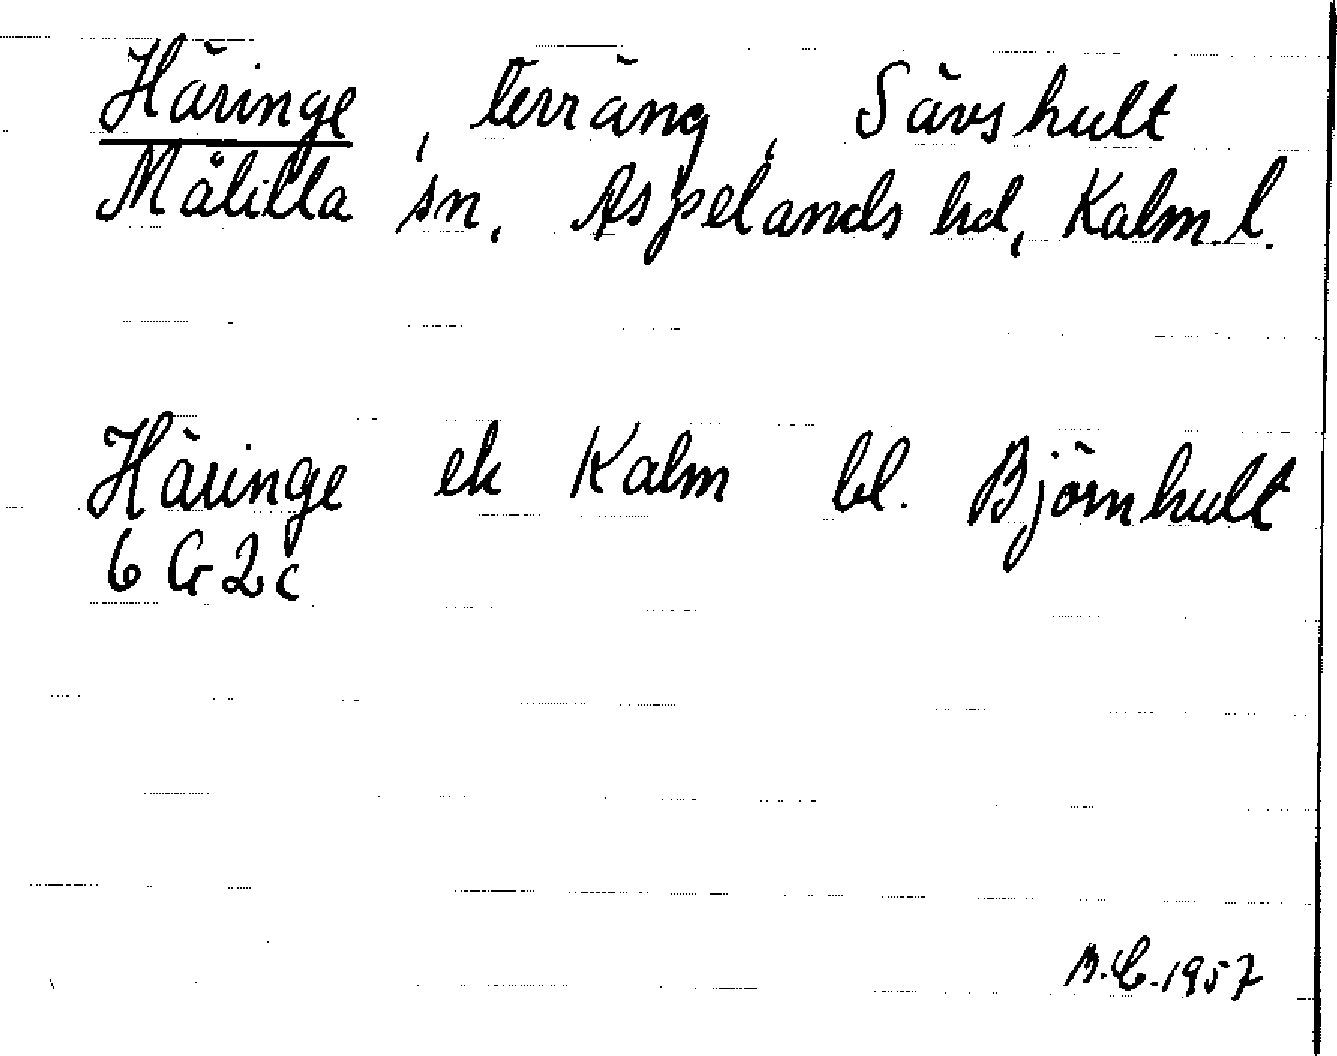 Häringe, terräng, Sävshult
Målilla sn, Aspelands hd, Kalm. l.
Häringe ek Kalm bl. Björnhult
6 G 2 c
B.E. 1957